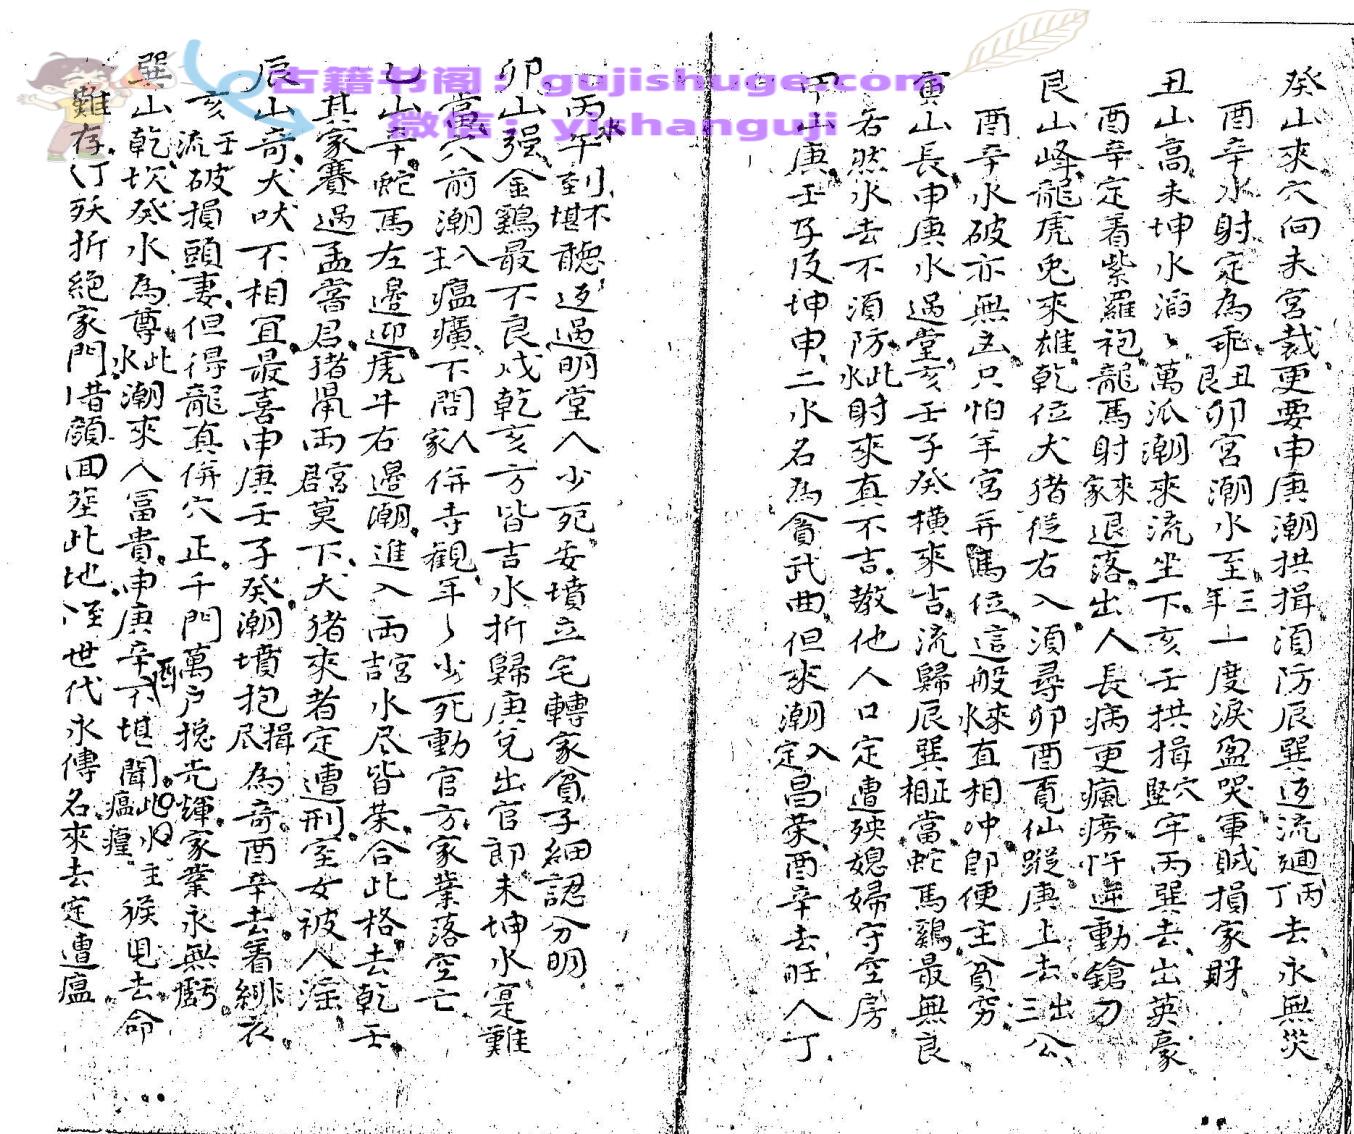 古籍书阁：gujishuge.com
微信：yishanguji
癸山來穴向未宮裁更要申庚潮拱揖須防辰巽逆流廻丙丁去永無災
酉辛水射定為乖丑艮卯宮潮水至三年一度淚盈哭軍賊損家財
丑山高未坤水滔、萬派潮來流坐下亥壬拱揖穴堅牢丙巽去出英豪
酉辛定着紫羅袍龍馬射來家退落出人長病更瘋癆忤逆動鎗刀
艮山峰龍虎兔來雄乾位犬猪從右入須尋卯酉覓仙蹤庚上去出三公
酉辛水破亦無凶只怕羊宮并馬位這般水來直相冲即便主貧窮
寅山長申庚水過堂亥壬子癸橫來吉流歸辰巽正相當蛇馬鷄最無良
若然水去不須防此水射來真不吉教他人口定遭殃媳婦守空房
甲山庚壬子及坤申二水名為貪武曲但來潮入定昌榮酉辛去旺人丁
丙午水到不堪聽逆過明堂人少死安墳立宅轉家貧子細認分明
卯山强金鷄最不良戌乾亥方皆吉水折歸庚兌出官郎未坤水寔難
當穴前潮入主瘟癀下問人家併寺觀年々少死動官方家業落空亡
乙山辛蛇馬左邊迎虎牛右邊潮進入兩宮吉水尽皆榮合此格去乾壬
其家賽過孟嘗君猪鼠兩宮君莫下犬猪來者定遭刑室女被人淫
辰山奇犬吠不相宜最喜申庚壬子癸潮墳抱揖尽為奇酉辛去着緋衣
亥壬流破損頭妻但得龍真併穴正千門萬户挹光輝家業永無虧
巽山乾坎癸水為尊此水潮來人富貴申庚辛酉不堪聞此水主瘟㾮猴黽去命
難存人丁殀折絕家門惜顔回葬此地、世代永傳名來去定遭瘟